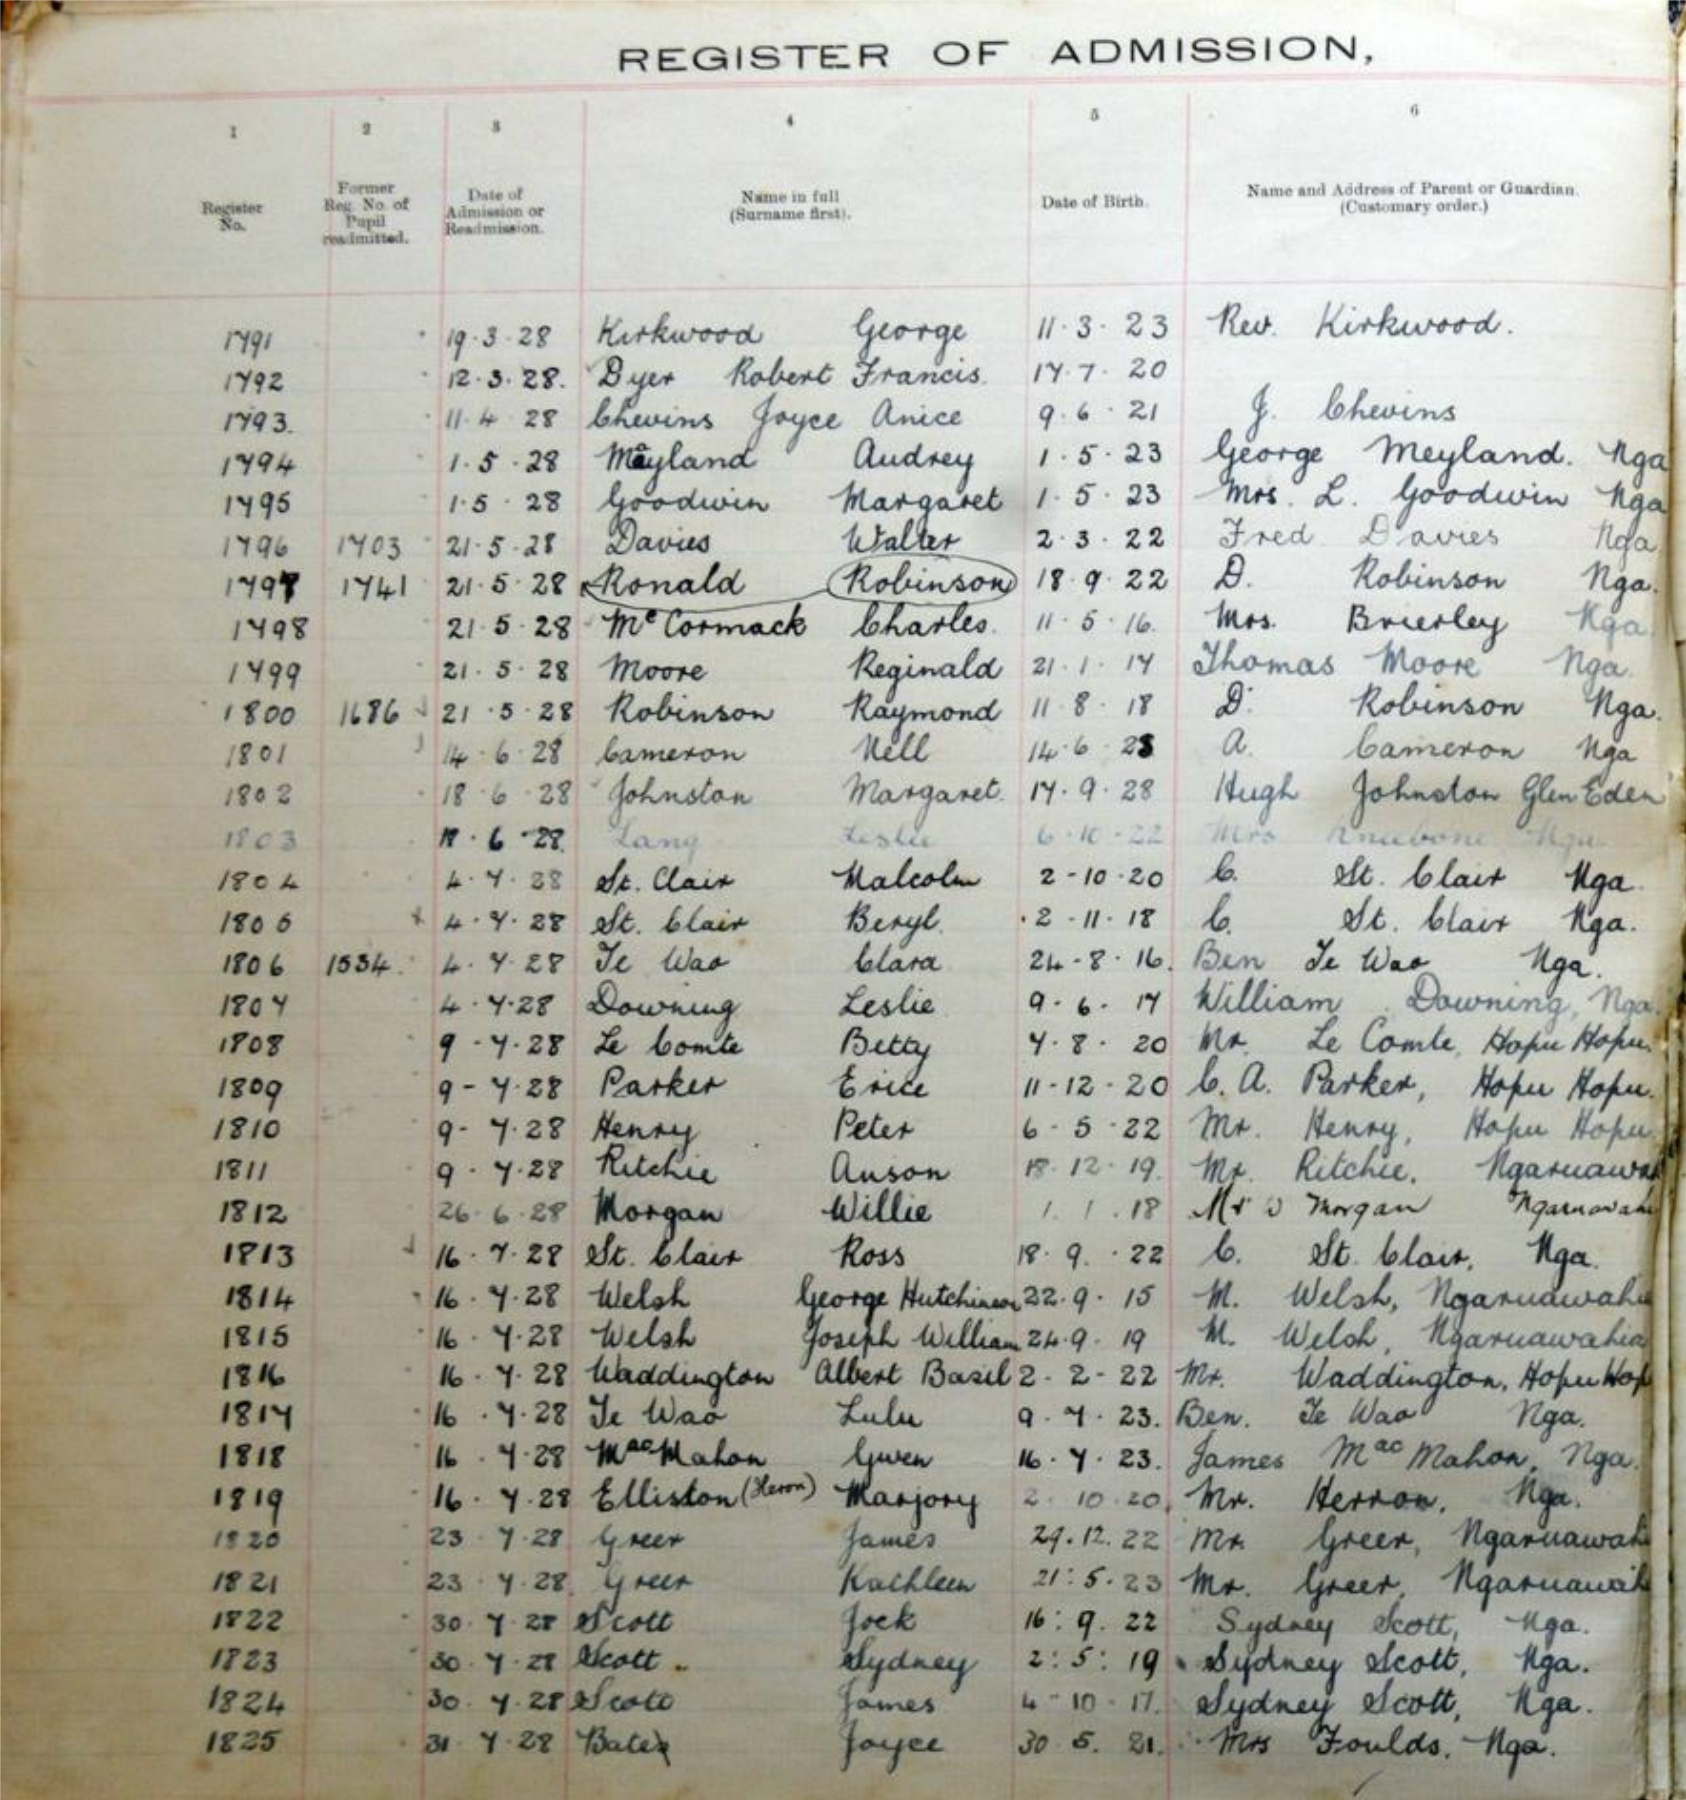 REGISTER OF ADMISSION,
1 2 3 4 5 6
Register No. Former Reg. No. of Pupil readmitted. Date of Admission or Readmission. Name in full (Surname first). Date of Birth. Name and Address of Parent or Guardian. (Customary order.)
1791 19·3·28 Kirkwood George 11·3·23 Rev. Kirkwood.
1792 12·3·28. Dyer Robert Francis. 17·7·20
1793. 11·4·28 Chevins Joyce Anice 9·6·21 J. Chevins
1794 1·5·28 Meyland Audrey 1·5·23 George Meyland. Nga
1795 1·5·28 Goodwin Margaret 1·5·23 Mrs. L. Goodwin Nga
1796 1703 21·5·28 Davies Walter 2·3·22 Fred Davies Nga
1797 1741 21·5·28 Ronald Robinson 18·9·22 D. Robinson Nga.
1798 21·5·28 McCormack Charles. 11·5·16. Mrs. Brierley Nga.
1799 21·5·28 Moore Reginald 21·1·17 Thomas Moore Nga.
1800 1686 21·5·28 Robinson Raymond 11·8·18 D. Robinson Nga.
1801 14·6·28 Cameron Nell 14·6·23 A. Cameron Nga
1802 18·6·28 Johnston Margaret. 17·9·28 Hugh Johnston Glen Eden
1803 18·6·28. Lang Leslie 6·10·22 Mrs Nga
1804 4·7·28 St. Clair Malcolm 2-10·20 C. St. Clair Nga.
1805 4·7·28 St. Clair Beryl. 2-11·18 C. St. Clair Nga.
1806 1534. 4·7·28 Te Wao Clara 24-8·16. Ben Te Wao Nga.
1807 4·7·28 Downing Leslie 9·6·17 William Downing, Nga.
1808 9-7·28 Le Comte Betty 7·8·20 Mr. Le Comte, Hopu Hopu.
1809 9-7·28 Parker Erice 11-12-20 C. A. Parker, Hopu Hopu.
1810 9-7·28 Henry Peter 6-5·22 Mr. Henry, Hopu Hopu.
1811 9-7·28 Ritchie Anson 18·12·19. Mr. Ritchie. Ngaruawa
1812 26·6·28 Morgan Willie 1.1.18 Mr W Morgan Ngaruawah
1813 16·7·28 St. Clair Ross 18·9·22 C. St. Clair, Nga.
1814 16·7·28 Welsh George Hutchinson 22·9·15 M. Welsh, Ngaruawahia
1815 16·7·28 Welsh Joseph William 24·9·19 M. Welsh, Ngaruawahia
1816 16·7·28 Waddington Albert Basil 2-2-22 Mr. Waddington, Hopu Hop
1817 16·7·28 Te Wao Lulu 9·7·23. Ben. Te Wao Nga.
1818 16·7·28 MacMahon Gwen 16·7·23. James MacMahon, Nga.
1819 16·7·28 Elliston (Heron) Marjory 2·10·20. Mr. Herron. Nga.
1820 23·7·28 Greer James 29.12.22 Mr. Greer, Ngaruawah
1821 23·7·28. Greer Kathleen 21:5·23 Mr. Greer, Ngaruawah
1822 30·7·28 Scott Jock 16:9.22 Sydney Scott, Nga.
1823 30·7·28 Scott Sydney 2:5:19 Sydney Scott, Nga.
1824 30·7·28 Scott James 4-10-17. Sydney Scott, Nga.
1825 31·7·28 Bates Joyce 30·5.21. Mrs Foulds. Nga.